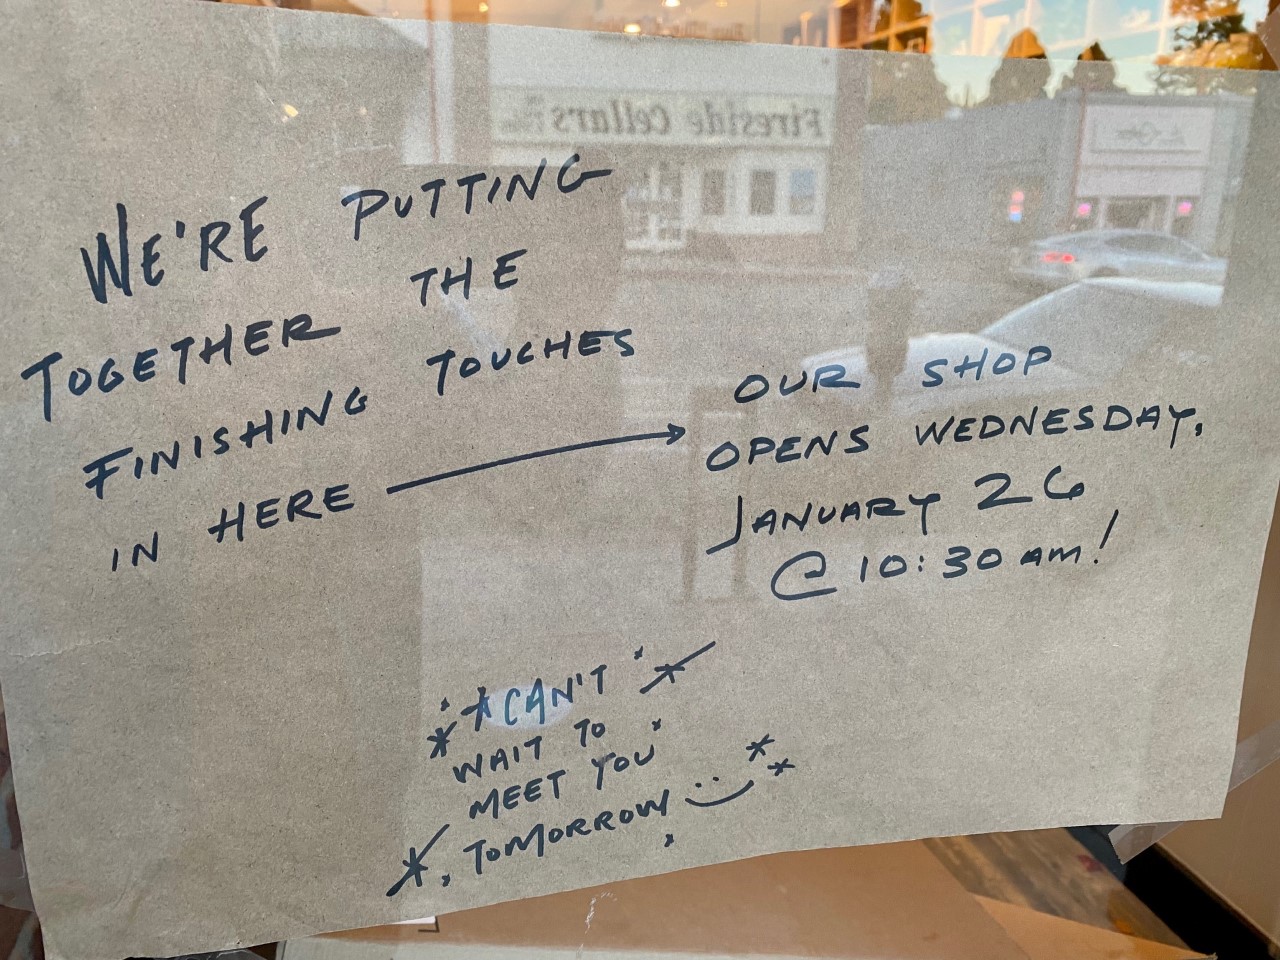 WE'RE PUTTING
TOGETHER THE
FINISHING TOUCHES
IN HERE
OUR SHOP
OPENS WEDNESDAY,
JANUARY 26
@ 10:30 AM!
CAN'T
WAIT TO
MEET YOU
TOMORROW
Fireside Cellars